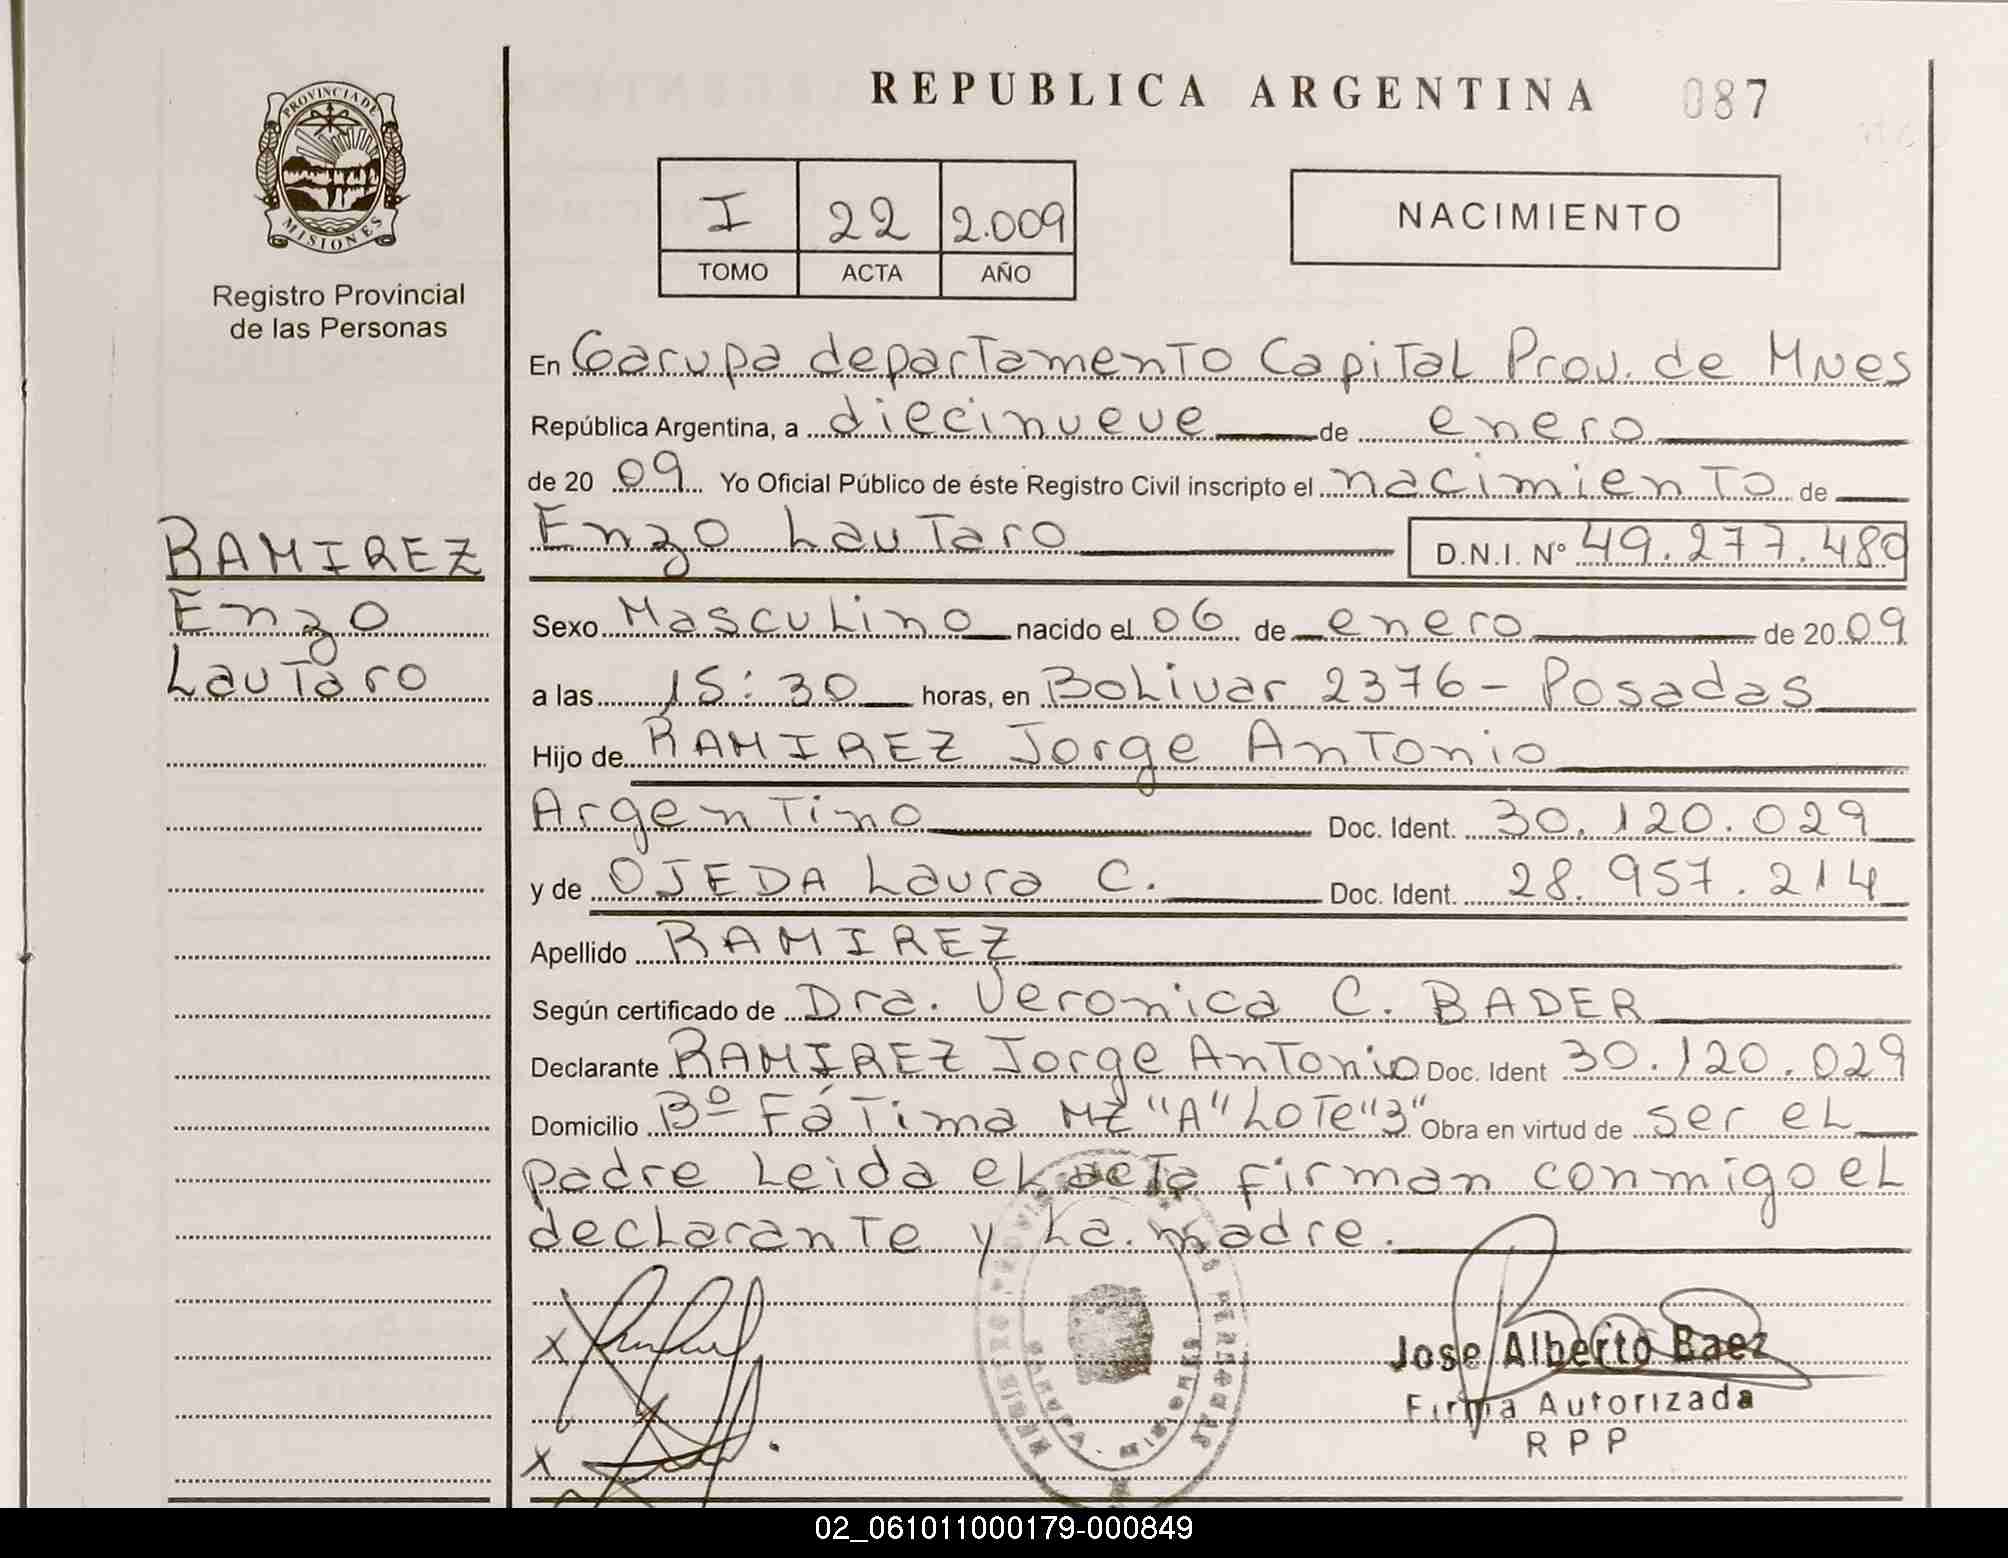 REPUBLICA ARGENTINA 087
PROVINCIA DE
MISIONES
Registro Provincial
de las Personas
I 22 2.009
TOMO ACTA AÑO
NACIMIENTO
RAMIREZ
Enzo
Lautaro
En Garupa departamento Capital Prov. de Mnes
República Argentina, a diecinueve de enero
de 20 09 Yo Oficial Público de éste Registro Civil inscripto el nacimiento de
Enzo Lautaro D.N.I. Nº 49.277.480
Sexo Masculino nacido el 06 de enero de 20 09
a las 15:30 horas, en Bolivar 2376 - Posadas
Hijo de RAMIREZ Jorge Antonio
Argentino Doc. Ident. 30.120.029
y de OJEDA Laura C. Doc. Ident. 28.957.214
Apellido RAMIREZ
Según certificado de Dra. Veronica C. BADER
Declarante RAMIREZ Jorge Antonio Doc. Ident 30.120.029
Domicilio Bº Fátima Mz "A" Lote "3" Obra en virtud de ser el
padre Leida el acta firman conmigo el
declarante y la madre.
Jose Alberto Baez
Firma Autorizada
R P P
02_061011000179-000849